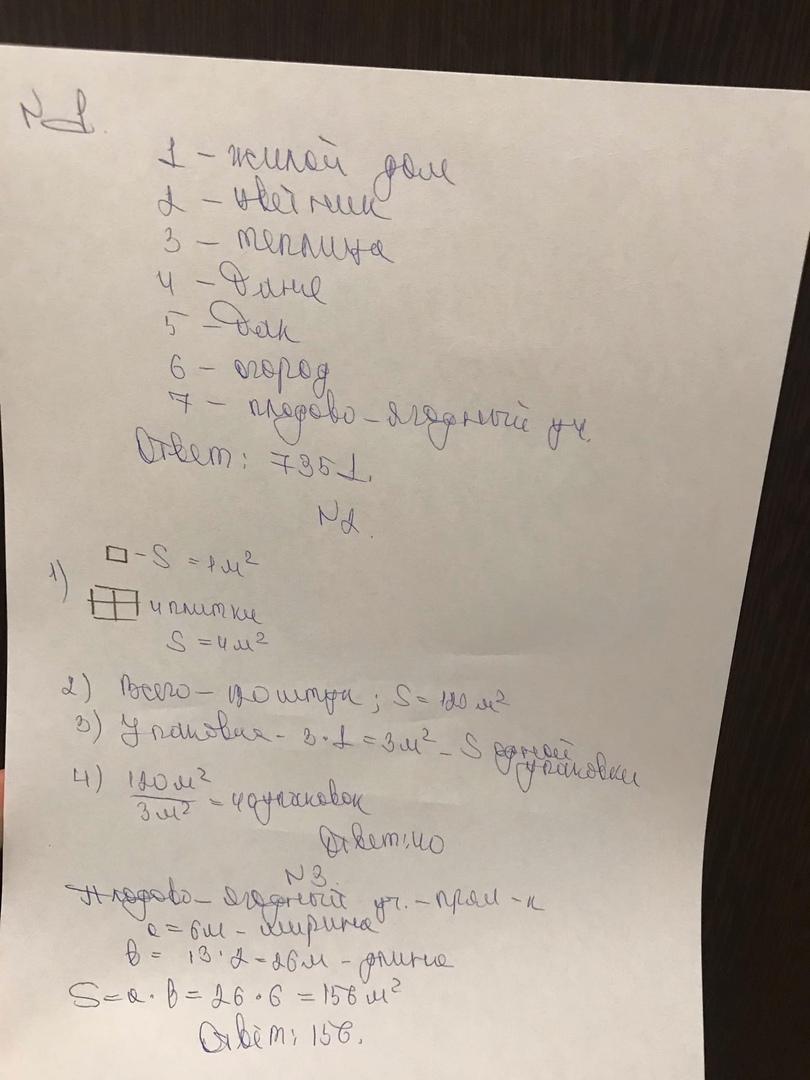 N1.
1 – жилой дом
2 – цветник
3 – теплица
4 – баня
5 – бак
6 – огород
7 – плодово-ягодный уч.
Ответ: 7351.
N2.
1) – S = 1 м²
4 плитки
S = 4 м²
2) Всего – 120 штук; S = 120 м²
3) Упаковка – 3·1 = 3 м² – S одной упаковки
4) 120 м² / 3 м² = 40 упаковок
Ответ: 40
N3.
Плодово-ягодный уч. – прям-к
a = 6 м – ширина
b = 13·2 = 26 м – длина
S = a·b = 26·6 = 156 м²
Ответ: 156.